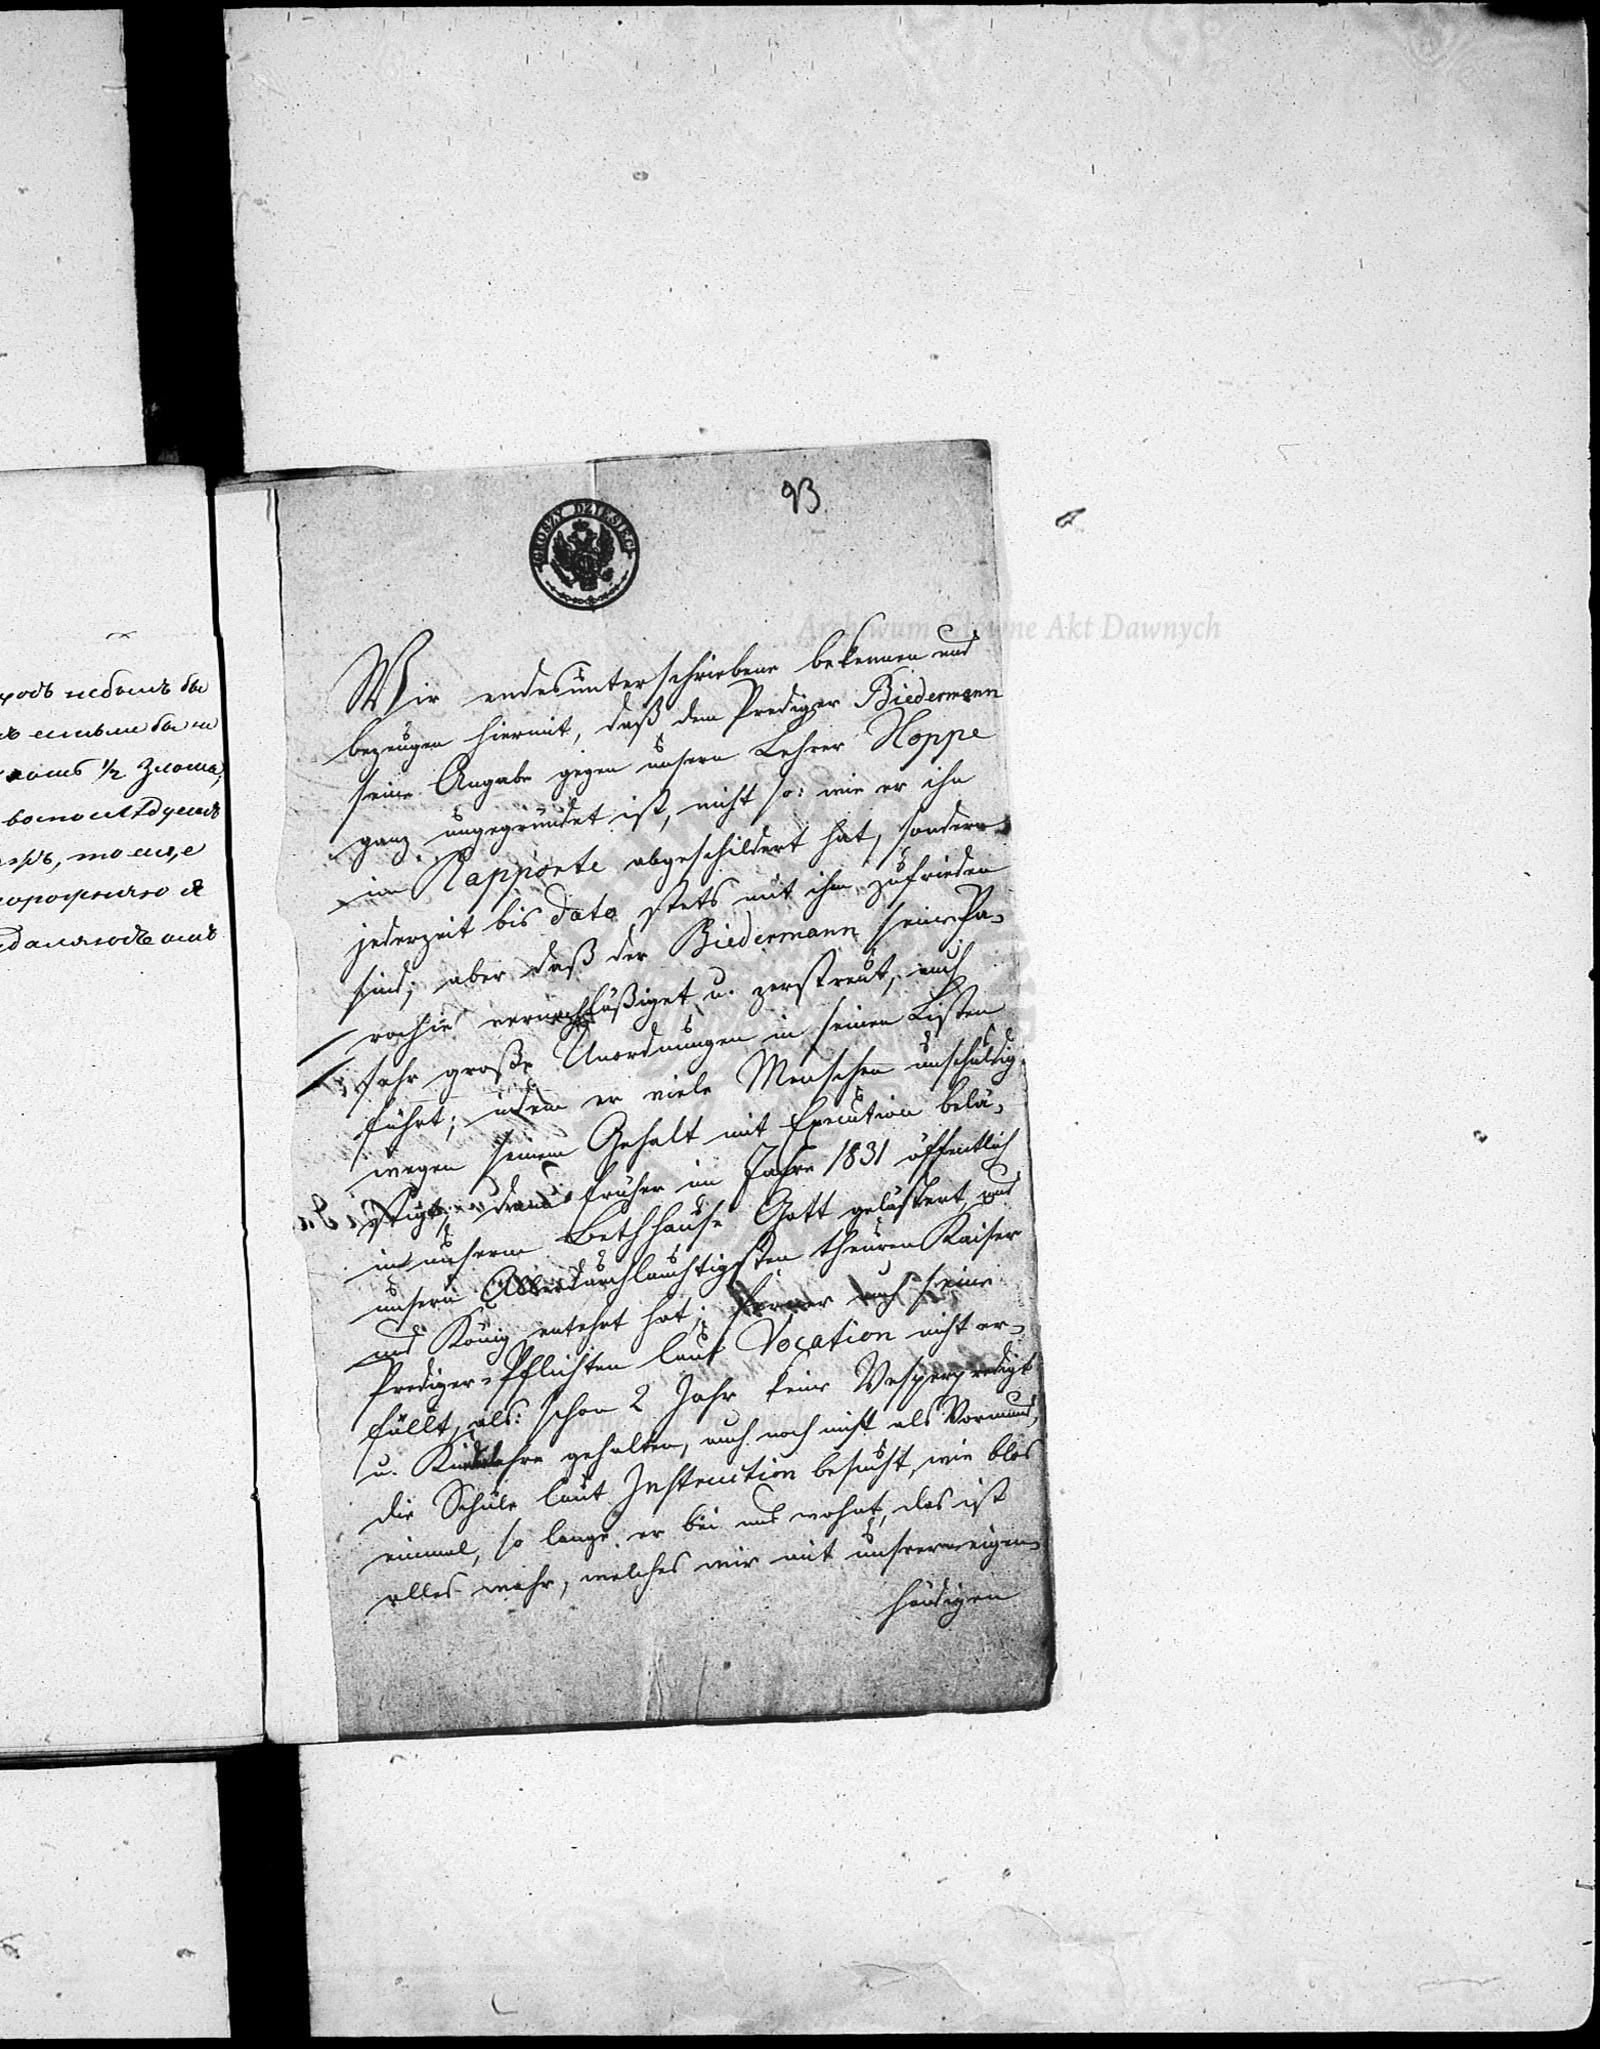 93
GROSZY DZIESIĘĆ
Archiwum Główne Akt Dawnych
Wir endesunterschriebene bekennen und
bezeugen hiermit, daß dem Prediger Biedermann
seine Angabe gegen unsern Lehrer Hoppe
ganz ungegründet ist, nicht so: wie er ihn
im Rapporte abgeschildert hat, sondern
jederzeit bis dato stets mit ihm zufrieden
sind; aber daß der Biedermann seine Pa-
rochie vernachläßiget u. zerstreut, auch
sehr große Unordnungen in seinen Listen
führt; indem er viele Menschen unschuldig
wegen seinem Gehalt mit Execution belä-
stigt, früher im Jahre 1831 öffentlich
in unserm Bethhause Gott gelästert, und
unsern Allerdurchlauchtigsten theuren Kaiser
und König entehrt hat; ferner auch seine
Prediger-Pflichten laut Vocation nicht er-
füllt, als: schon 2 Jahr keine Vesperpredigt
u. Kinderlehre gehalten, auch noch nicht als Vormund,
die Schule laut Instruction besucht, wie blos
einmal, so lange er bei uns wohnt, das ist
alles wahr, welches wir mit unserer eigen-
händigen
бы
бы не
1/2 злота,